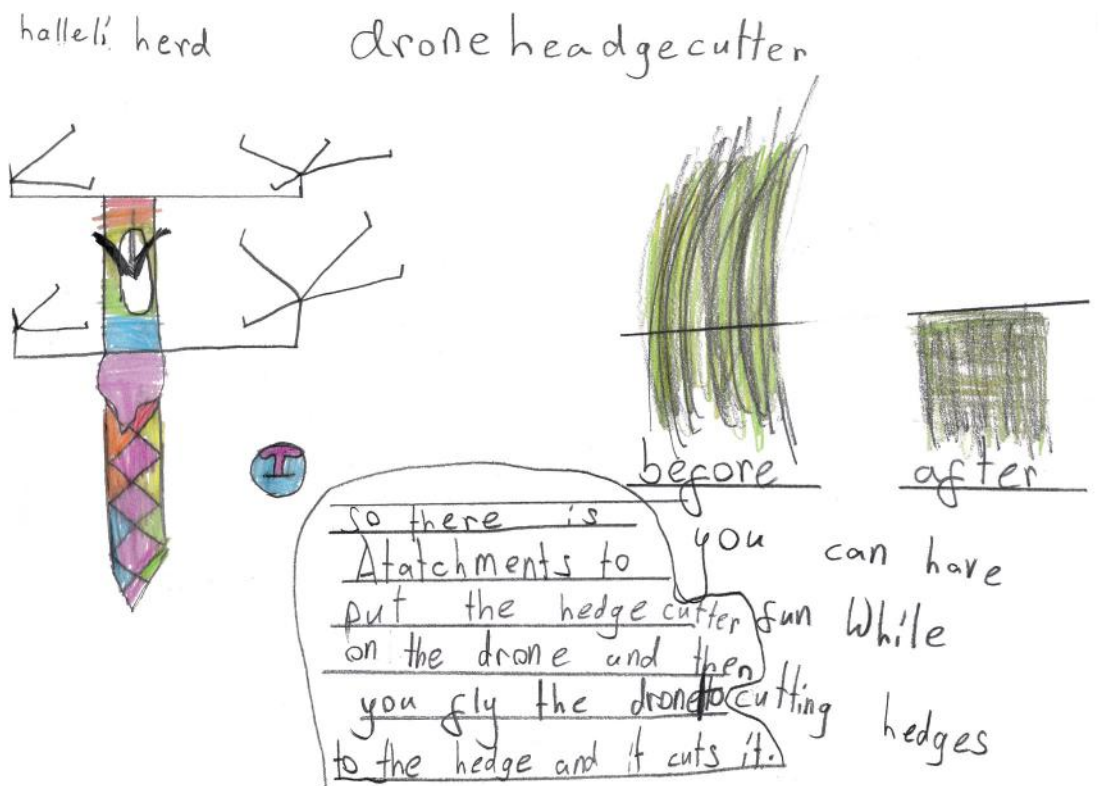 halleli herd
drone headgecutter
before
after
so there is
Atatchments to
put the hedge cutter
on the drone and then
you fly the drone to
to the hedge and it cuts it.
you can have
fun While
cutting
hedges